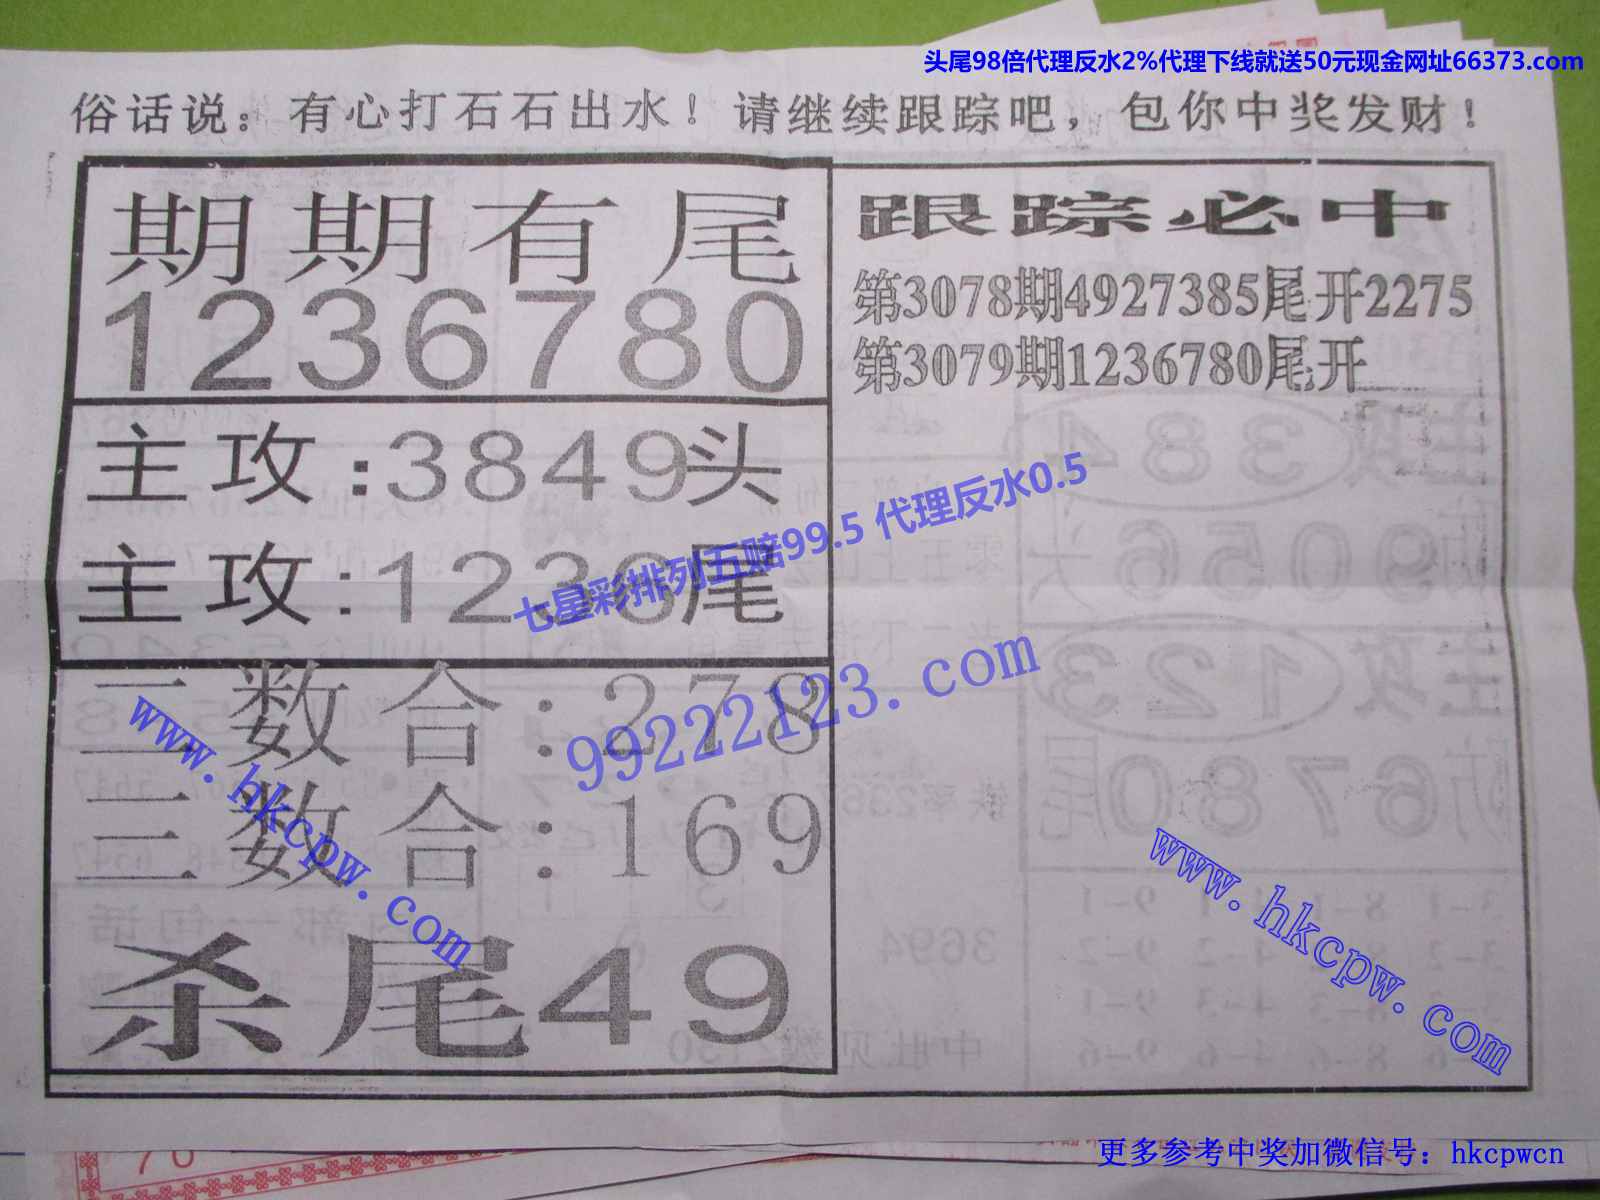 头尾98倍代理反水2%代理下线就送50元现金网址66373.com
俗话说：有心打石石出水！请继续跟踪吧，包你中奖发财！
期期有尾
1236780
主攻:3849头
主攻:1236尾
二数合:278
三数合:169
杀尾49
跟踪必中
第3078期4927385尾开2275
第3079期1236780尾开
七星彩排列五赔99.5 代理反水0.5
99222123.com
www.hkcpw.com
www.hkcpw.com
76
更多参考中奖加微信号：hkcpwcn